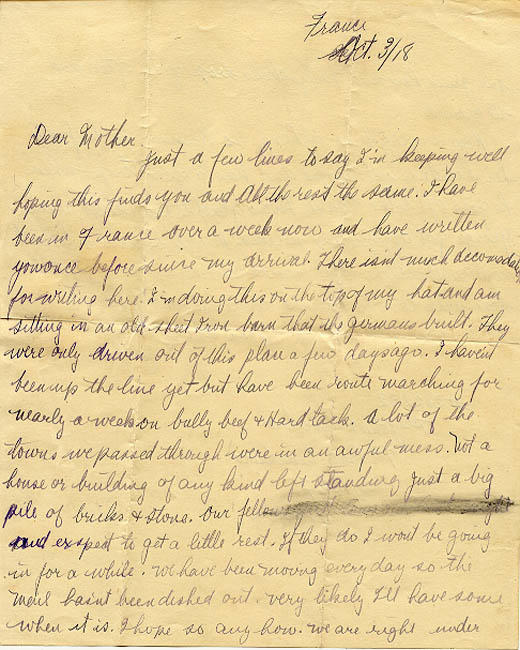 France
Oct. 3/18
Dear Mother
just a few lines to say I'm keeping well
hoping this finds you and all the rest the same. I have
been in France over a week now and have written
you once before since my arrival. There isn't much accomodat
for writing here. I'm doing this on the top of my hat and am
sitting in an old sheet Iron barn that the germans built. They
were only driven out of this plan a few days ago. I havent
been up the line yet but have been route marching for
nearly a week on bully beef & Hard tack. A lot of the
towns we passed through were in an awful mess. Not a
house or building of any kind left standing just a big
pile of bricks & stons. Our fellows
and exspect to get a little rest. If they do I wont be going
in for a while. We have been moving every day so the
meil hasn't been dished out. very likely I'll have some
when it is. I hope so any how. we are right under